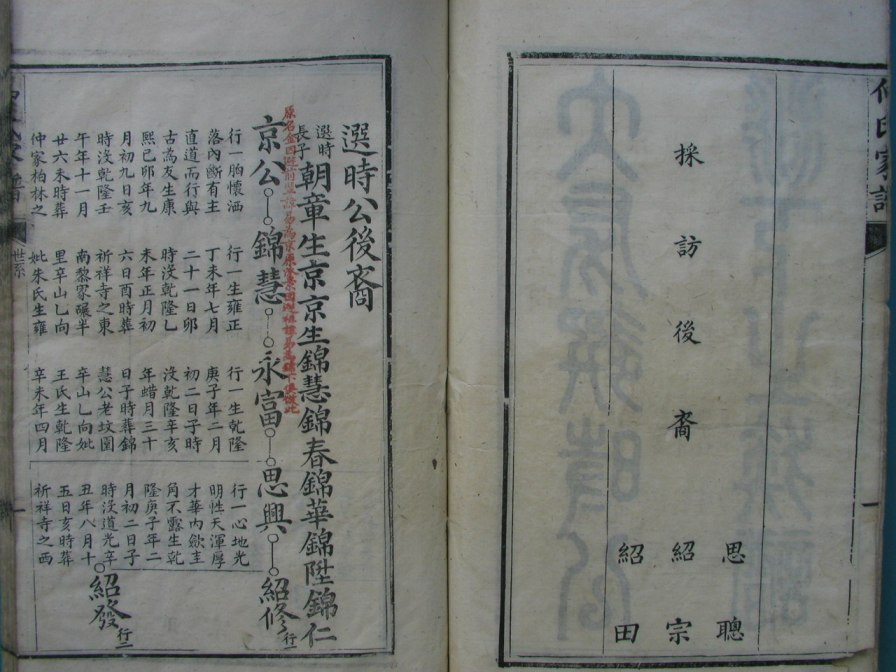 仲氏家譜
採訪後裔
思聰
紹宗
紹田
選時公後裔
選時
長子
朝章生京京生錦慧錦春錦華錦陞錦仁
京公
錦慧
永富
思興
紹修
行一
行一胸懷洒
落內斷有主
直道而行與
古為友生康
熙己卯年九
月初九日亥
時沒乾隆壬
午年十一月
廿六未時葬
仲家柏林之
行一生雍正
丁未年七月
二十一日卯
時沒乾隆乙
未年正月初
六日酉時葬
祈祥寺之東
南黎冢釅半
里辛山乙向
妣朱氏生雍
行一生乾隆
庚子年二月
初二日子時
沒乾隆辛亥
年蜡月三十
日子時葬錦
慧公老坟圍
辛山乙向妣
王氏生乾隆
辛未年四月
行一心地光
明性天渾厚
才華內歛圭
角不露生乾
隆庚子年二
月初二日子
時沒道光辛
丑年八月十
五日亥時葬
祈祥寺之西
紹發
行二
世系